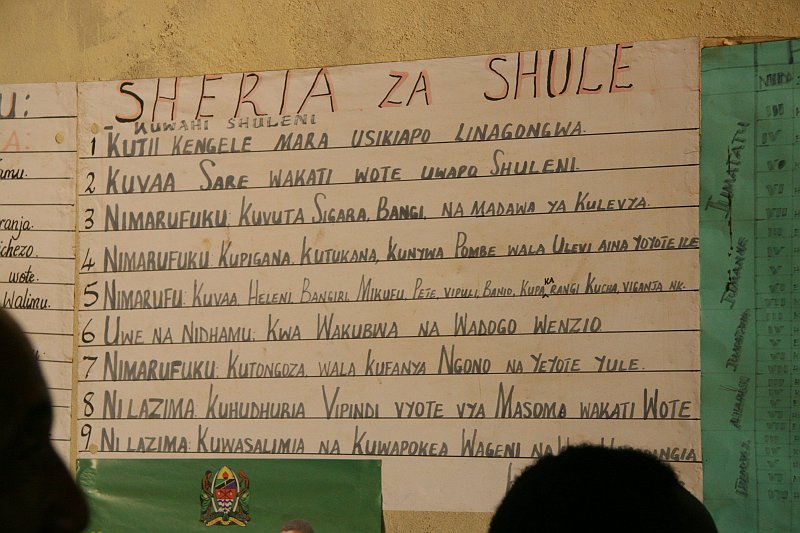 SHERIA ZA SHULE
- KUWAHI SHULENI
1 KUTII KENGELE MARA USIKIAPO LINAGONGWA.
2 KUVAA SARE WAKATI WOTE UWAPO SHULENI.
3 NIMARUFUKU: KUVUTA SIGARA, BANGI, NA MADAWA YA KULEVYA.
4 NIMARUFUKU KUPIGANA, KUTUKANA, KUNYWA POMBE WALA ULEVI AINA YOYOTE ILE
5 NIMARUFU: KUVAA, HELENI, BANGIRI, MIKUFU, PETE, VIPULI, BANIO, KUPAKA RANGI KUCHA, VIGANJA NK.
6 UWE NA NIDHAMU: KWA WAKUBWA NA WADOGO WENZIO
7 NIMARUFUKU: KUTONGOZA, WALA KUFANYA NGONO NA YEYOTE YULE.
8 NI LAZIMA: KUHUDHURIA VIPINDI VYOTE VYA MASOMO WAKATI WOTE
9 NI LAZIMA: KUWASALIMIA NA KUWAPOKEA WAGENI NA
wote
Walimu.
JUMATATU